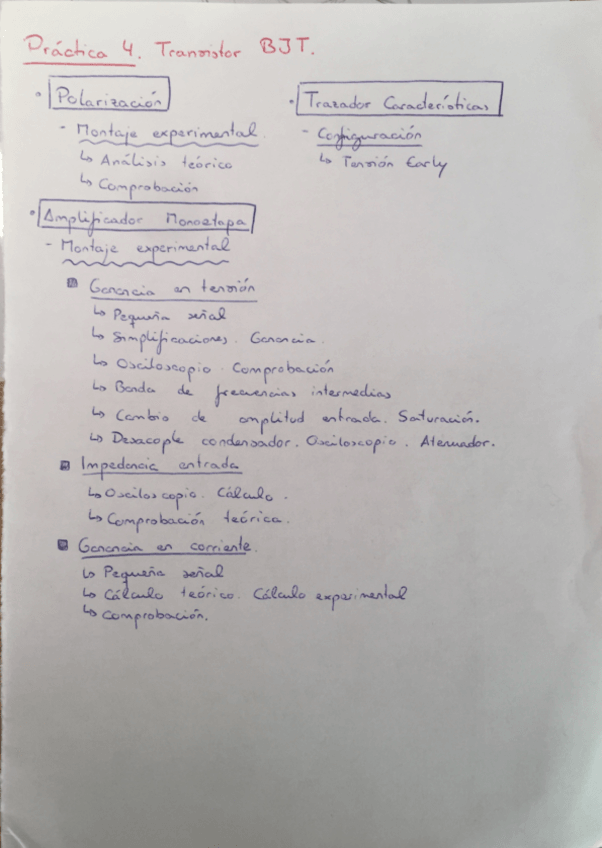 Práctica 4. Transistor BJT.
• Polarización
- Montaje experimental.
↳ Análisis teórico
↳ Comprobación
• Trazador Características
- Configuración
↳ Tensión Early
• Amplificador Monoetapa
- Montaje experimental
Ganancia en tensión
↳ Pequeña señal
↳ Simplificaciones. Ganancia.
↳ Osciloscopio. Comprobación
↳ Banda de frecuencias intermedias
↳ Cambio de amplitud entrada. Saturación.
↳ Desacople condensador. Osciloscopio. Atenuador.
Impedancia entrada
↳ Osciloscopio. Cálculo.
↳ Comprobación teórica.
Ganancia en corriente.
↳ Pequeña señal
↳ Cálculo teórico. Cálculo experimental
↳ Comprobación.